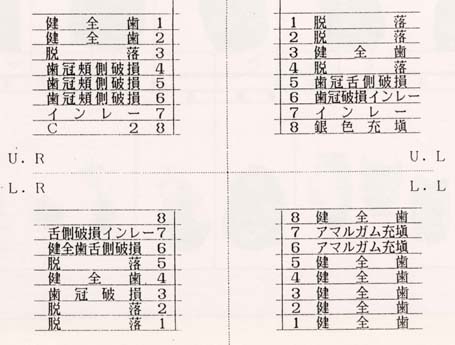 健全歯 1
健全歯 2
脱落 3
歯冠頬側破損 4
歯冠頬側破損 5
歯冠頬側破損 6
インレー 7
C2 8
1 脱落
2 脱落
3 健全歯
4 脱落
5 歯冠舌側破損
6 歯冠破損インレー
7 インレー
8 銀色充塡
U.R
U.L
L.R
L.L
8
舌側破損インレー7
健全歯舌側破損 6
脱落 5
健全歯 4
歯冠破損 3
脱落 2
脱落 1
8 健全歯
7 アマルガム充塡
6 アマルガム充塡
5 健全歯
4 健全歯
3 健全歯
2 健全歯
1 健全歯